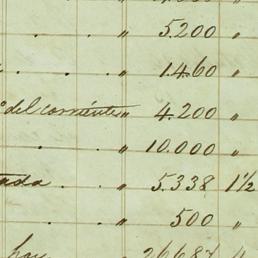 " 5.200 "
. . . " 1.460 "
del corriente " 4.200 "
. . " 10.000 "
. . " 5.338 1½
. . " 500 "
hay